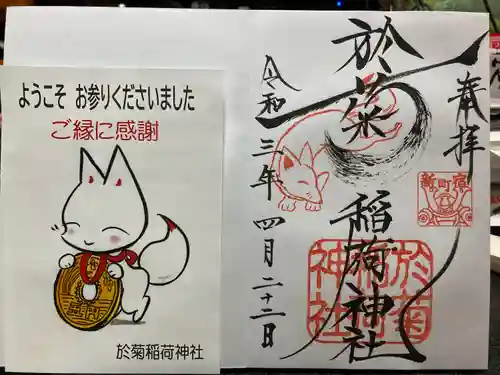 ようこそ お参りくださいました
ご縁に感謝
五円
於菊稲荷神社
奉拝
新町宿
於菊稲荷神社
於菊稲荷神社
令和三年四月二十二日